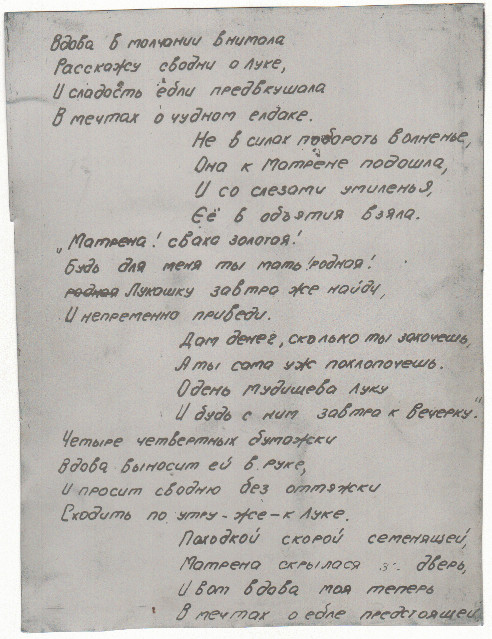 Вдова в молчании внимала
Рассказу сводни о Луке,
И сладость ебли предвкушала
В мечтах о чудном елдаке.
Не в силах побороть волненье,
Она к Матрёне подошла,
И со слезами умиленья,
Её в объятия взяла.
„Матрена! сваха золотая!
Будь для меня ты мать! родная!
родная Лукашку завтра же найду,
И непременно приведи.
Дам денег, сколько ты захочешь,
А ты сама уж похлопочешь.
Одень Мудищева Луку
И будь с ним завтра к вечерку."
Четыре четвертных бумажки
Вдова выносит ей в руке,
И просит сводню без оттяжки
Сходить по утру-же-к Луке.
Походкой скорой семенящей,
Матрена скрылася за дверь,
И вот вдова моя теперь
В мечтах о ебле предстоящей